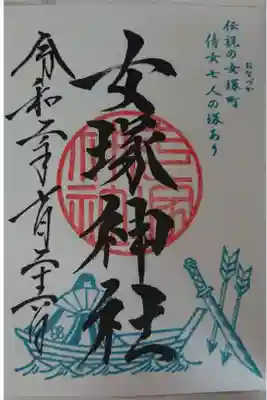 おなづか
伝説の女塚町
侍女七人の塚あり
女塚神社
令和年月二十日